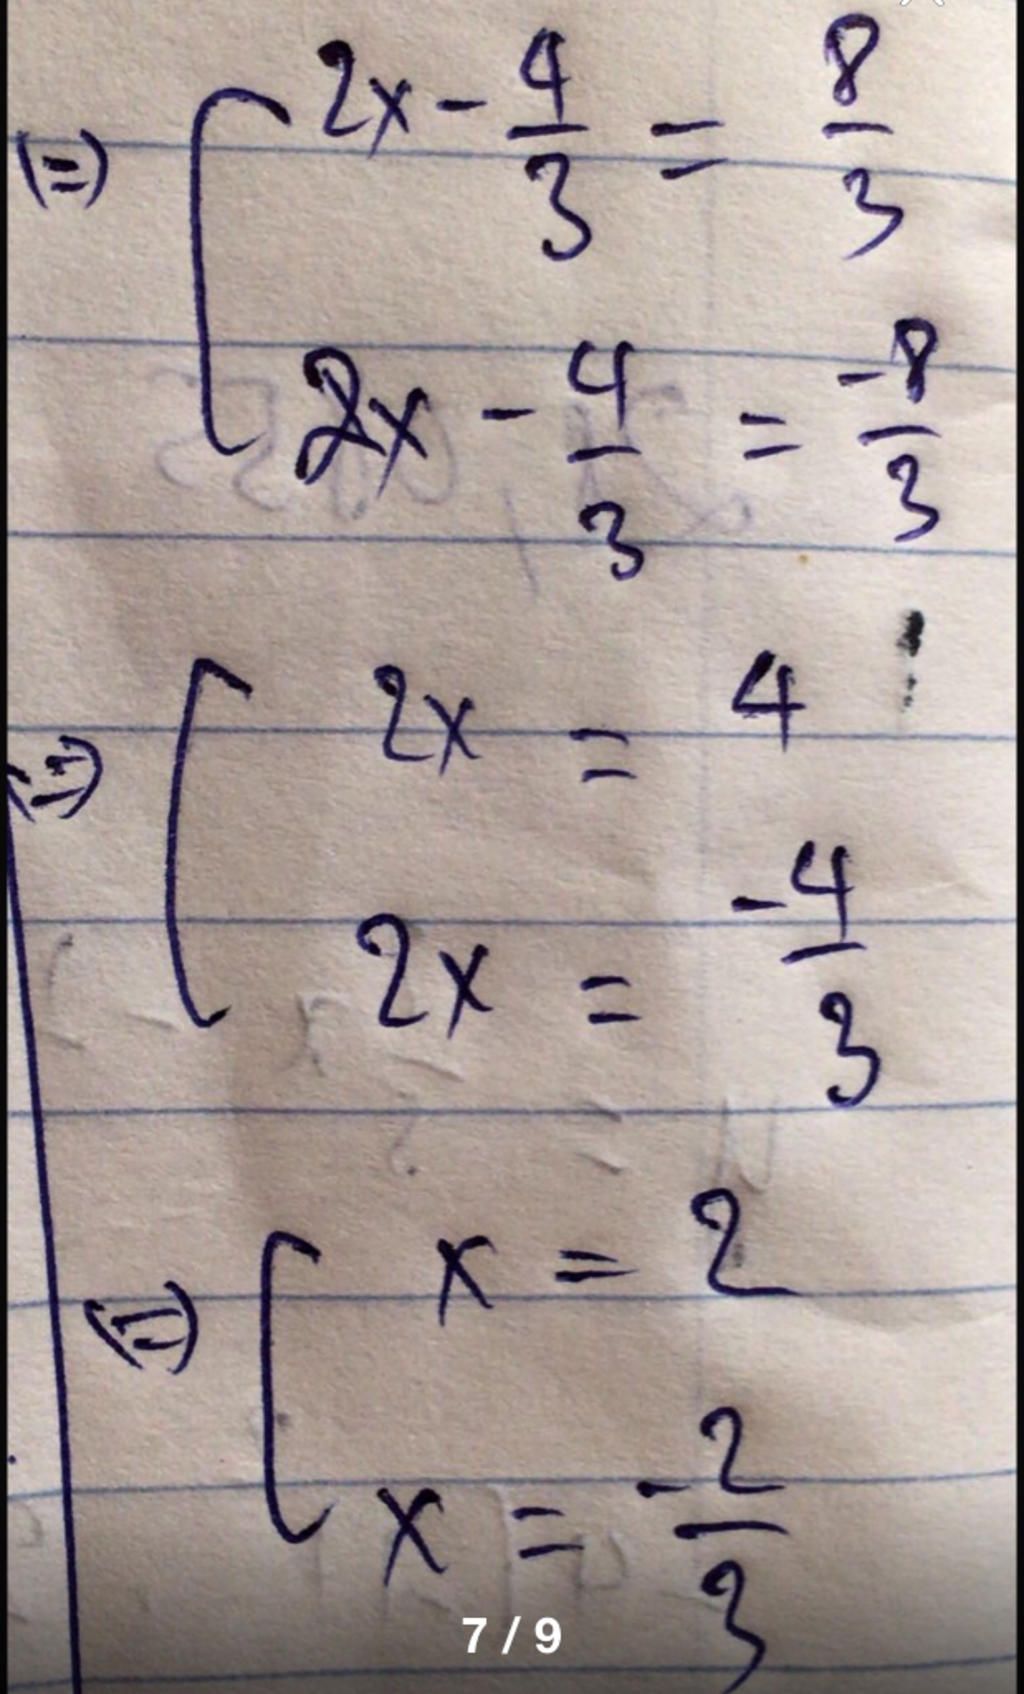 (=) [ 2x - 4/3 = 8/3
2x - 4/3 = -8/3
(=) [ 2x = 4
2x = -4/3
(=) [ x = 2
x = -2/3
7 / 9